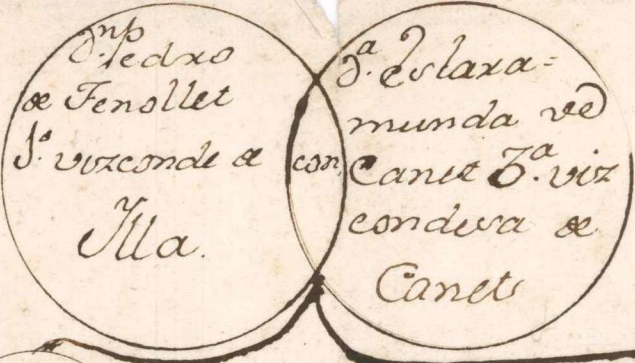 Dn. Pedro
de Fenollet
1º. vizconde de
Illa.
con
Dª. Eslara=
munda de
Canet 3ª. viz
condesa de
Canet